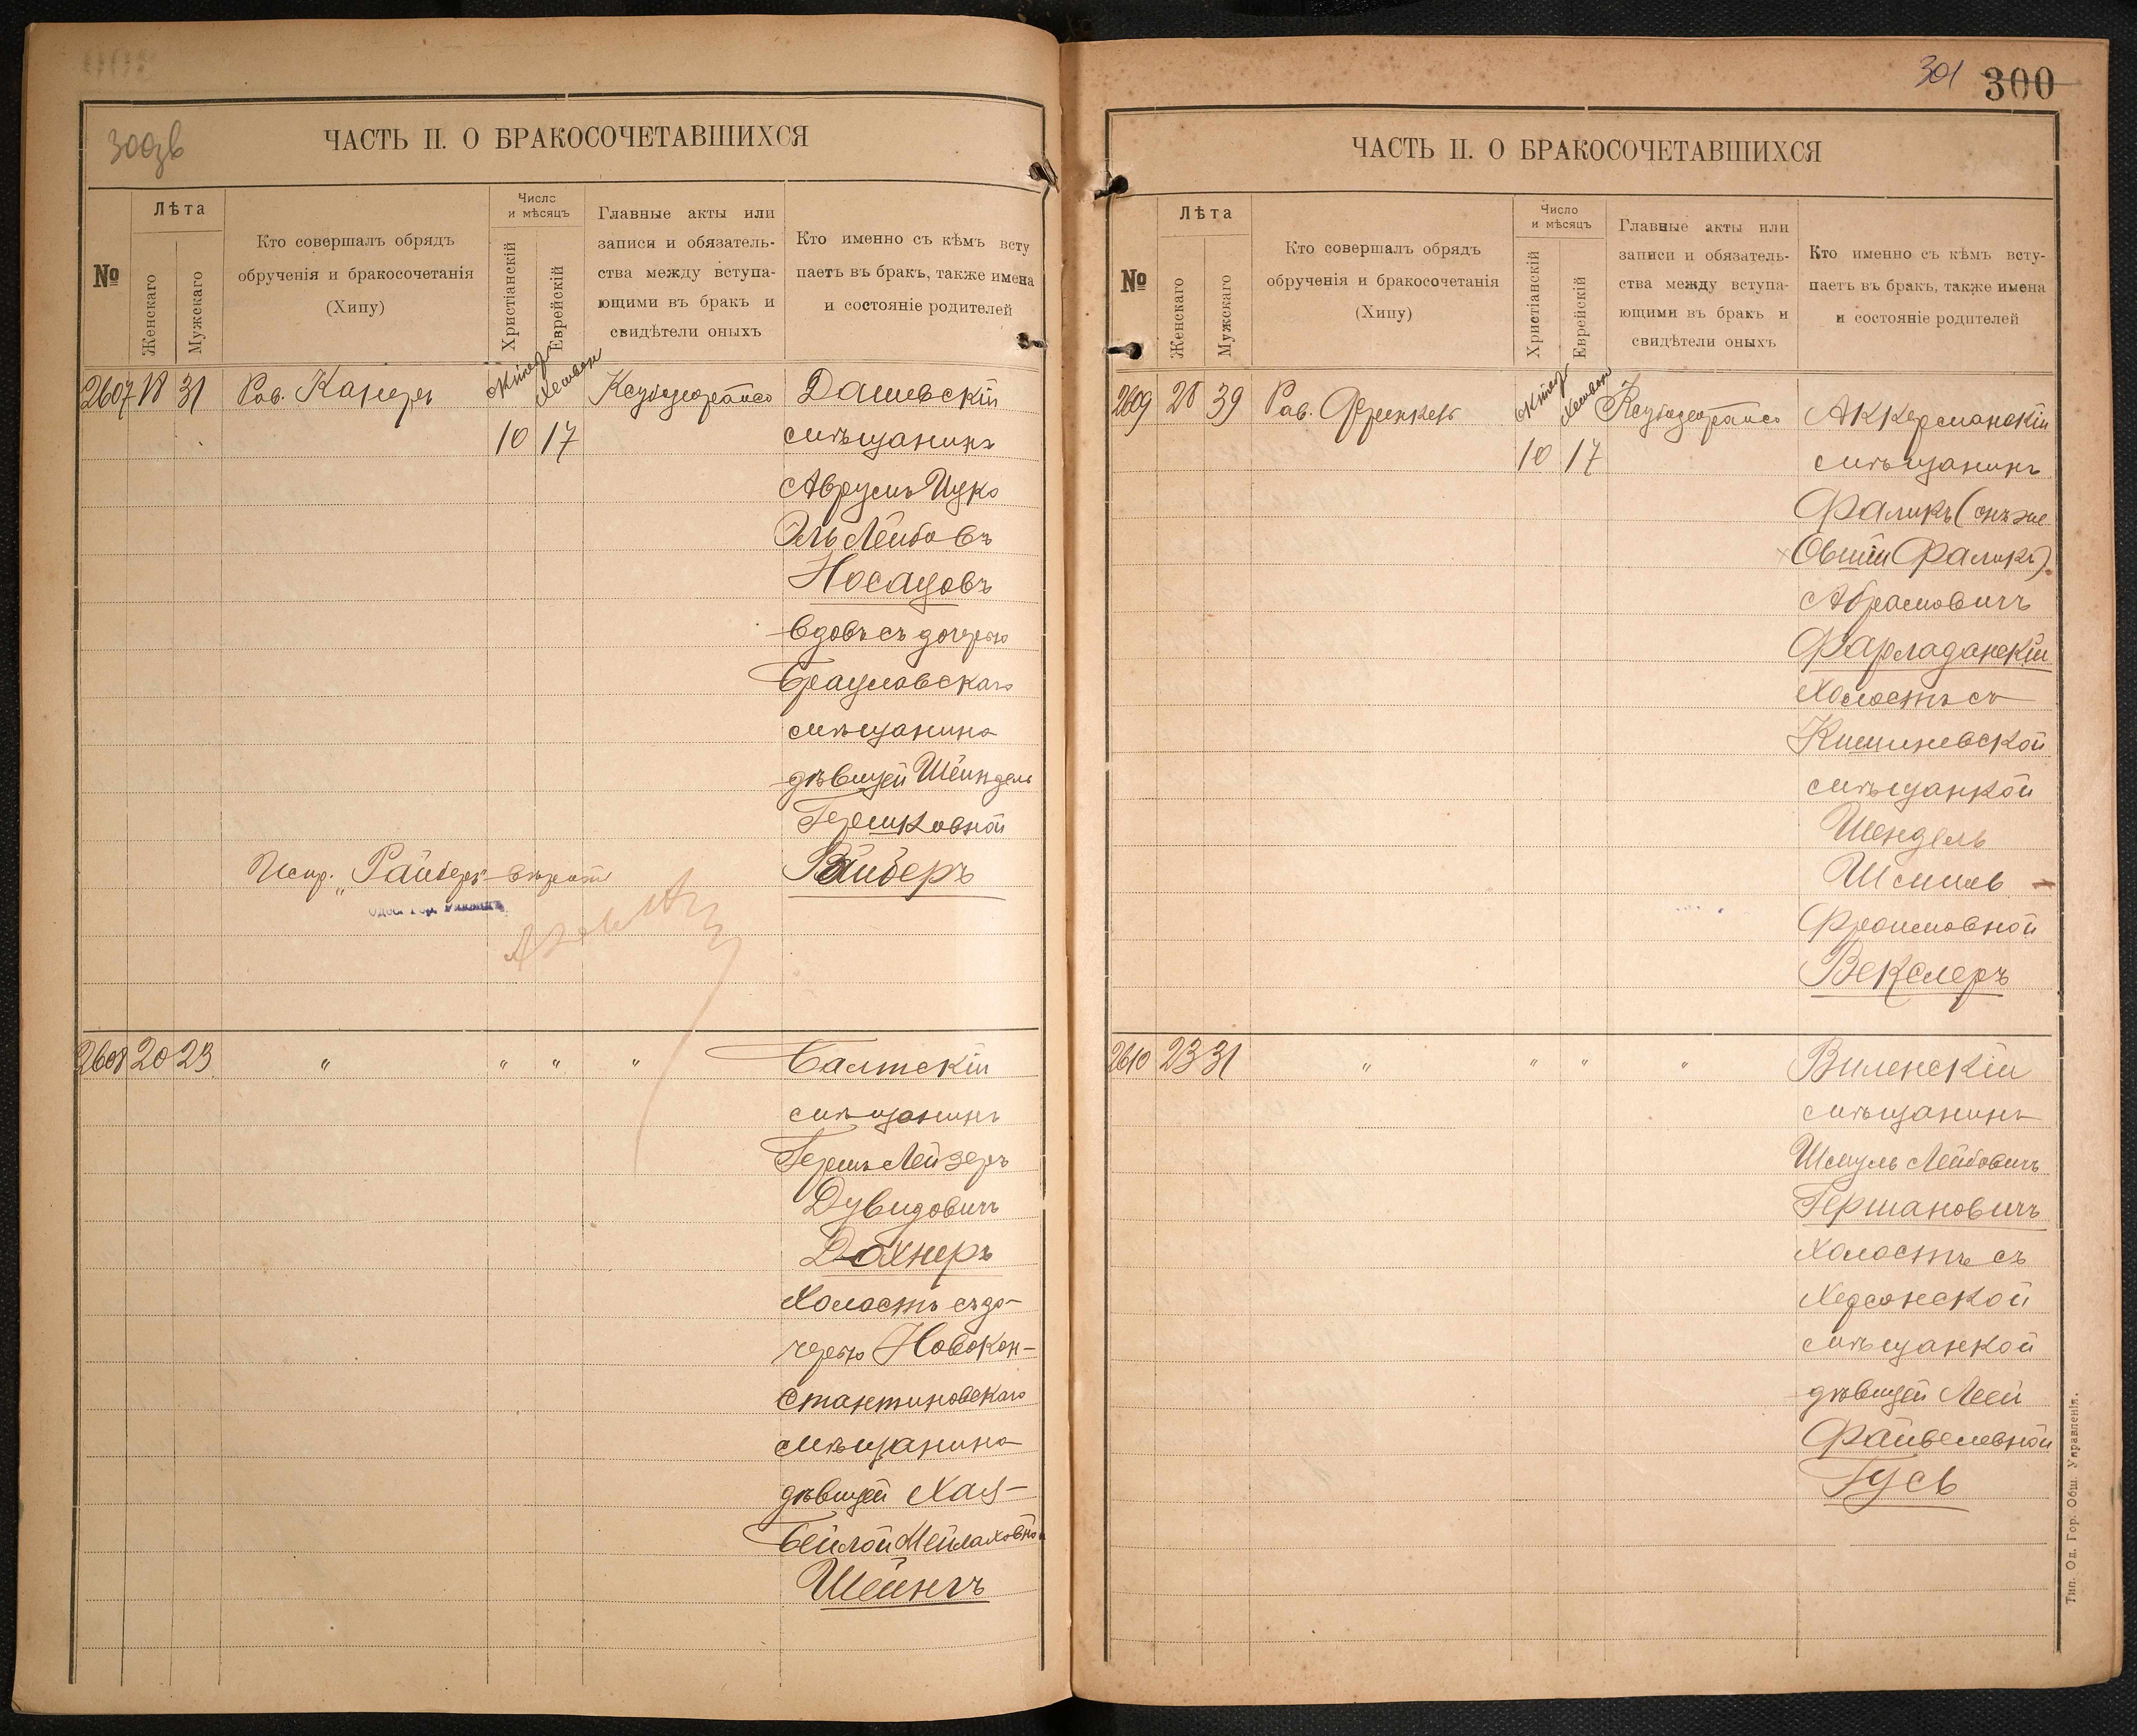 300зв
ЧАСТЬ II. О БРАКОСОЧЕТАВШИХСЯ
№
Лѣта
Женскаго
Мужскаго
Кто совершалъ обрядъ
обрученія и бракосочетанія
(Хипу)
Число
и мѣсяцъ
Христіанскій
Еврейскій
Главные акты или
записи и обязатель-
ства между вступа-
ющими въ бракъ и
свидѣтели оныхъ
Кто именно съ кѣмъ всту
паетъ въ бракъ, также имена
и состояніе родителей
2607 18 31 Рав. Канеръ Дашевскій
10 17 мѣщанинъ
Аврумъ Ицко
Эль Лейбовъ
Носацовъ
вдовъ съ дочерью
Брацлавскаго
мѣщанина
дѣвицей Шейндель
Гершковной
Испр. „Райберъ" вѣрно Райберъ
Одес. Гор. Раввинъ
2608 20 23 " " " " Балтскій
мѣщанинъ
Гершъ Лейзеръ
Дувидовичъ
Дохнеръ
холостъ съ до-
черью Новокон-
стантиновскаго
мѣщанина
дѣвицей Хая-
Бейлой Мейлаховной
Шейнгъ
301 300
ЧАСТЬ II. О БРАКОСОЧЕТАВШИХСЯ
№
Лѣта
Женскаго
Мужскаго
Кто совершалъ обрядъ
обрученія и бракосочетанія
(Хипу)
Число
и мѣсяцъ
Христіанскій
Еврейскій
Главные акты или
записи и обязатель-
ства между вступа-
ющими въ бракъ и
свидѣтели оныхъ
Кто именно съ кѣмъ всту-
паетъ въ бракъ, также имена
и состояніе родителей
2609 28 39 Рав. Френкель Аккерманскій
10 17 мѣщанинъ
Фаликъ (онъ же
Овшій Фаликъ)
Абрамовичъ
Фарладанскій
холостъ съ
Кишиневской
мѣщанкой
Шендель
Фроимовной
Векслеръ
2610 23 31 " " " " Виленскій
мѣщанинъ
Шмуль Лейбовичъ
Гершановичъ
холостъ съ
Херсонской
мѣщанкой
дѣвицей Леей
Файвелевной
Гусь
Тип. Од. Гор. Общ. Управленія.